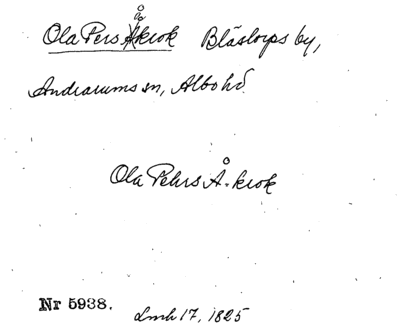 Ola Pers Åkrok Blästorps by,
Andrarums sn, Albo hd.
Ola Pehrs Å-krok
Nr 5938. Lmh 17, 1825